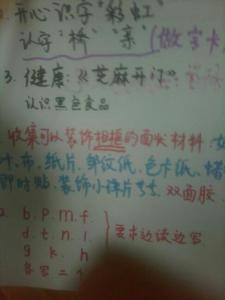 开心识字"彩虹"
认字"桥""亲"(做字卡
3. 健康:《芝麻开门》
认识黑色食品
收集可以装饰相框的面状材料:如
叶、布、纸片、皱纹纸、色卡纸、墙
即时贴、装饰小碎片等、双面胶
2. b. p. m. f.
d. t. n. l.
g. k. h
要求边读边写
各写二个